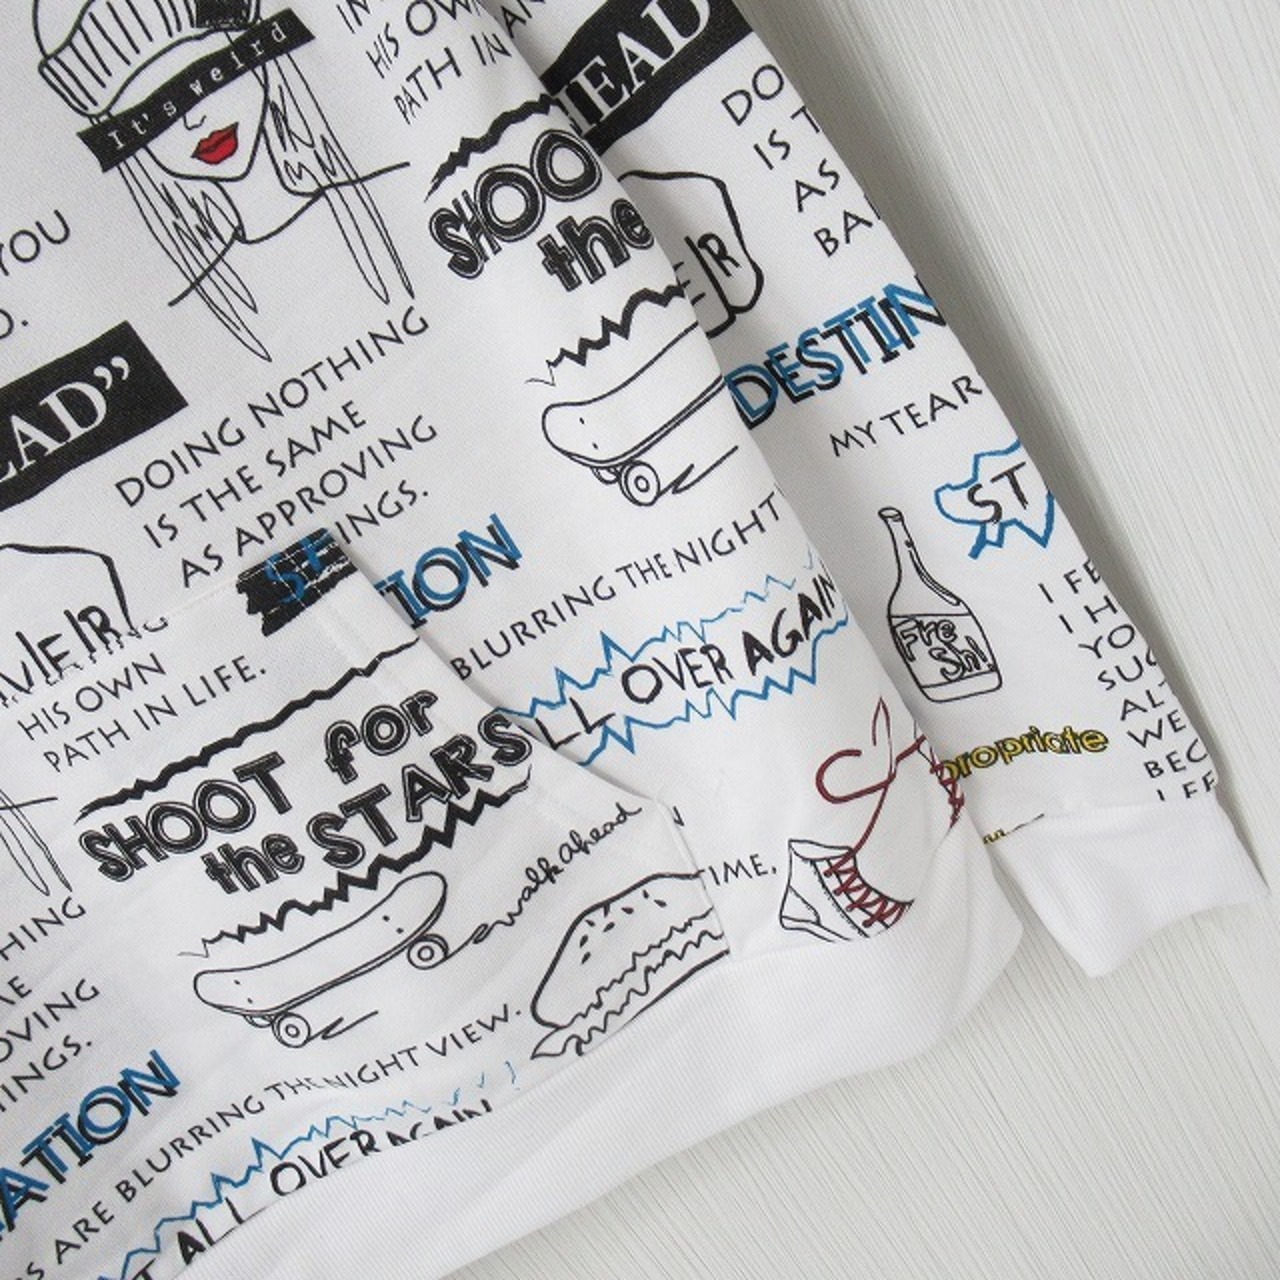 It's weird
HIS OWN
PATH IN
YOU
EAD”
HEAD
SHOO
the
DO
IS T
AS
BA
DOING NOTHING
IS THE SAME
AS APPROVING
INGS.
DESTIN
MY TEAR
ST
TION
BLURRING THE NIGHT
LL OVER AGAIN
Fre
Sh!
ropriate
I FE
I H
YO
SUC
AL
WE
BEC
I FE
VER
HIS OWN
PATH IN LIFE.
SHOOT for
the STARS
walk ahead
TIME.
HING
ME
OVING
INGS.
ATION
ARE BLURRING THE NIGHT VIEW.
ALL OVER AGAIN